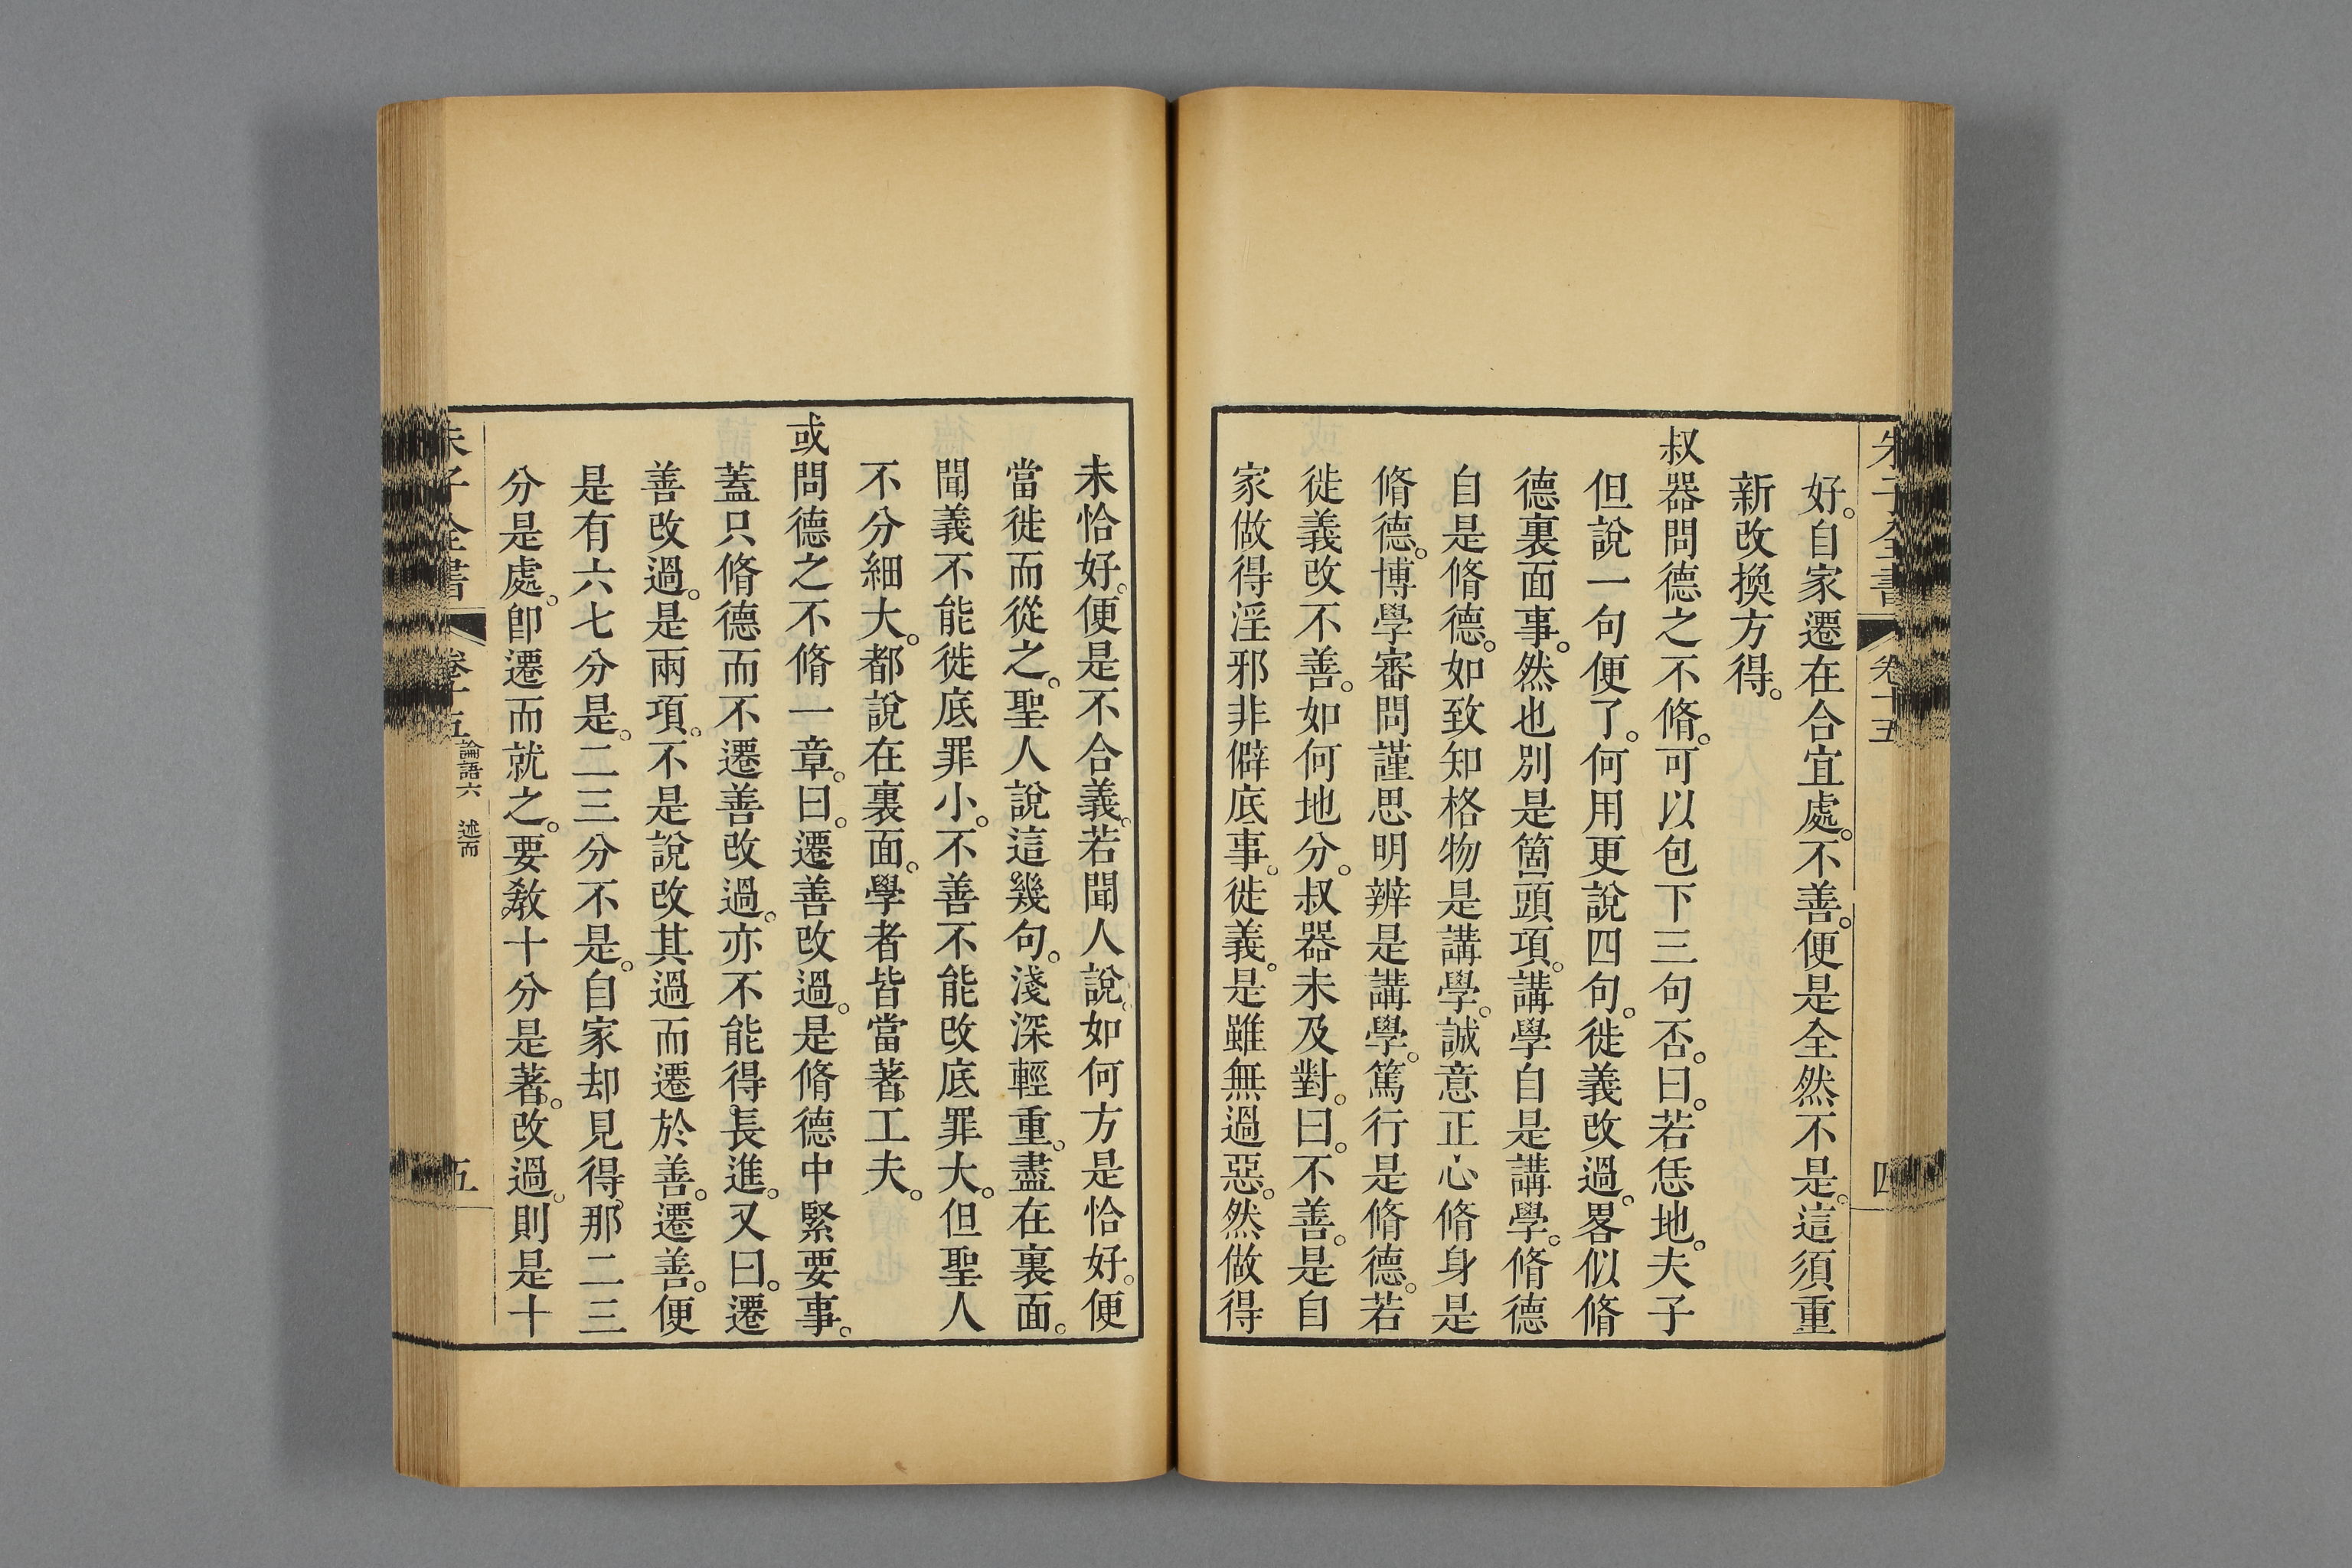 朱子全書 卷十五 四
好。自家遷在合宜處。不善。便是全然不是。這須重
新改換方得。
叔器問德之不脩。可以包下三句否。曰。若恁地。夫子
但說一句便了。何用更說四句。徙義改過。畧似脩
德裏面事。然也別是箇頭項。講學自是講學。脩德
自是脩德。如致知格物是講學。誠意正心脩身是
脩德。博學審問謹思明辨是講學。篤行是脩德。若
徙義改不善。如何地分。叔器未及對。曰。不善。是自
家做得淫邪非僻底事。徙義。是雖無過惡。然做得
未恰好。便是不合義。若聞人說。如何方是恰好。便
當徙而從之。聖人說這幾句。淺深輕重。盡在裏面。
聞義不能徙底罪小。不善不能改底罪大。但聖人
不分細大。都說在裏面。學者皆當著工夫。
或問德之不脩一章。曰。遷善改過。是脩德中緊要事。
蓋只脩德而不遷善改過。亦不能得長進。又曰。遷
善改過。是兩項。不是說改其過而遷於善。遷善。便
是有六七分是。二三分不是。自家却見得。那二三
分是處。卽遷而就之。要教十分是著。改過。則是十
朱子全書 卷十五 論語六 述而 五